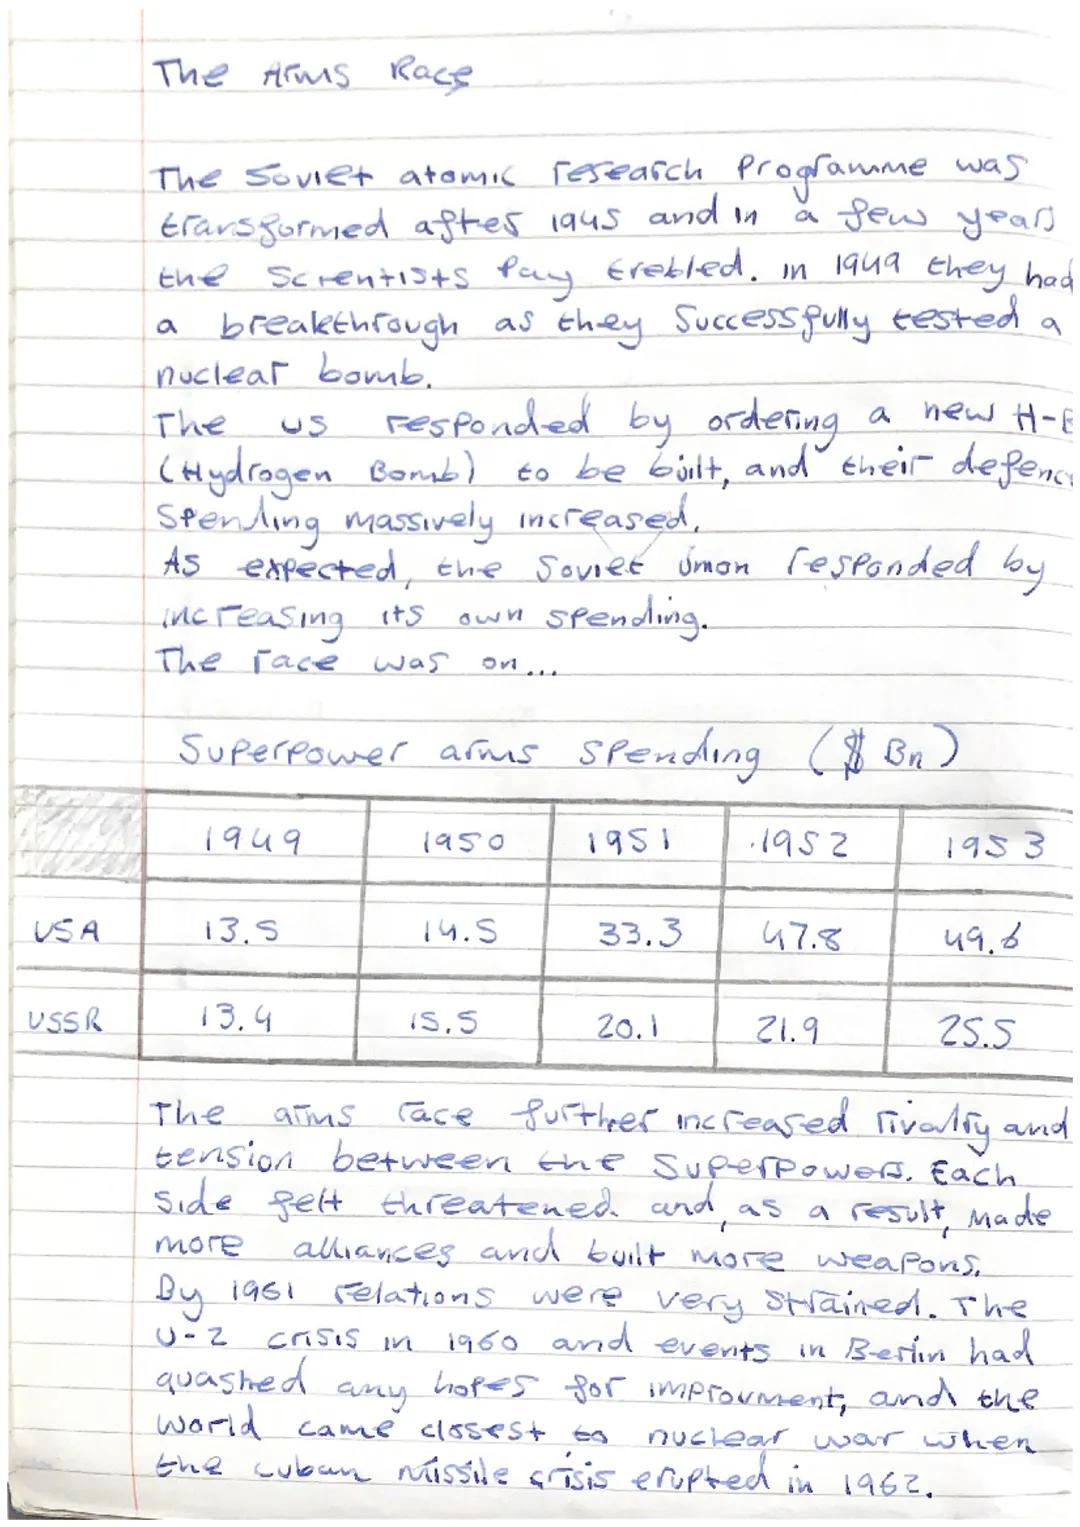 The Arms Race
The Soviet atomic research Programme was
transformed after 1945 and in a few years
the Scientists Pay trebled. in 1949 they had
a breakthrough as they Successfully tested a
nuclear bomb.
The US responded by ordering a new H-B
(Hydrogen Bomb) to be built, and their defence
Spending massively increased.
As expected, the Soviet Union responded by
increasing its own spending.
The race was on...
Superpower arms Spending ($ Bn)
1949 1950 1951 1952 1953
USA 13.5 14.5 33.3 47.8 49.6
USSR 13.4 15.5 20.1 21.9 25.5
The arms race further increased rivalry and
tension between the Superpowers. Each
side felt threatened and, as a result, made
more alliances and built more weapons.
By 1961 relations were very Strained. The
U-2 crisis in 1960 and events in Berlin had
quashed any hopes for improvment, and the
world came closest to nuclear war when
the cuban missile crisis erupted in 1962.